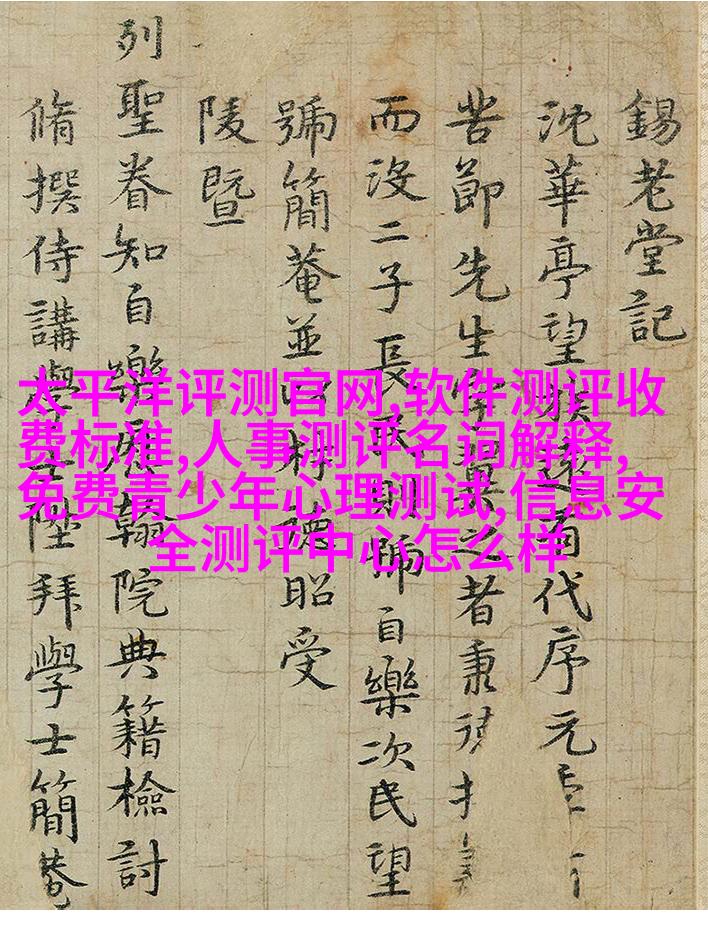 太平洋评测官网,软件测评收
费标准,人事测评名词解释,
免费青少年心理测试,信息安
全测评中心怎么样
錫老堂記
沈華亭望族遠有代序元
苦節先生之者秉
而沒二子長師自樂次民望
號簡菴並以材德昭受
陵暨
列聖眷知自樂歷翰院典籍檢討
脩撰侍講學士陞拜學士簡菴